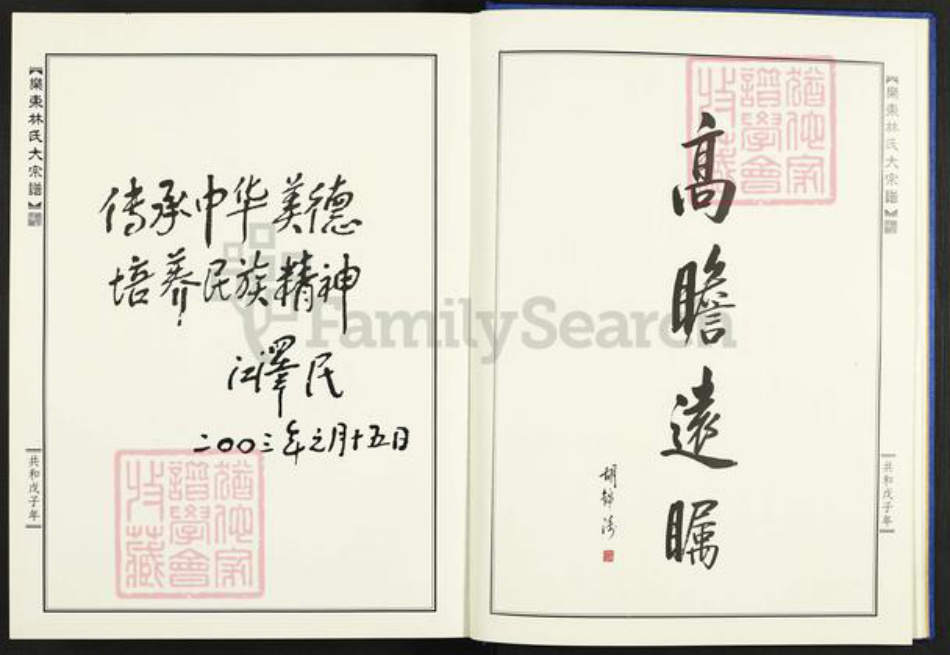 【樂東林氏大宗譜】
传承中华美德
培养民族精神
江澤民
二〇〇三年元月十五日
共和戊子年
猶他家
譜學會
收藏
FamilySearch
【樂東林氏大宗譜】
高瞻遠瞩
胡錦濤
共和戊子年
猶他家
譜學會
收藏